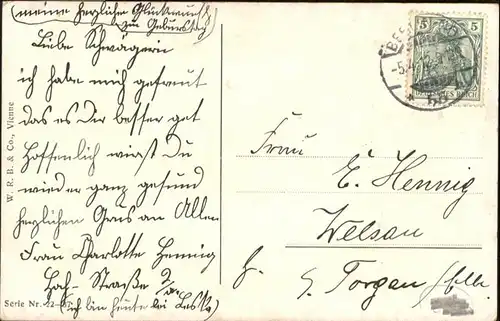 (meine herzliche Glückwunsch
zu Geburstag
Liebe Schwägerin
ich habe mich gefreut
das es Dir besser get
Hoffenlich wirst Du
wieder ganz gesund
herzlichen Grus an Allen
Frau Charlotte Hennig
Straße 9
ich bin heute bei
Serie Nr. 22-
W. R. B. & Co., Vienne
5
5
DEUTSCHES REICH
Frau
E. Hennig
Welsau
b. Torgau / Elbe.